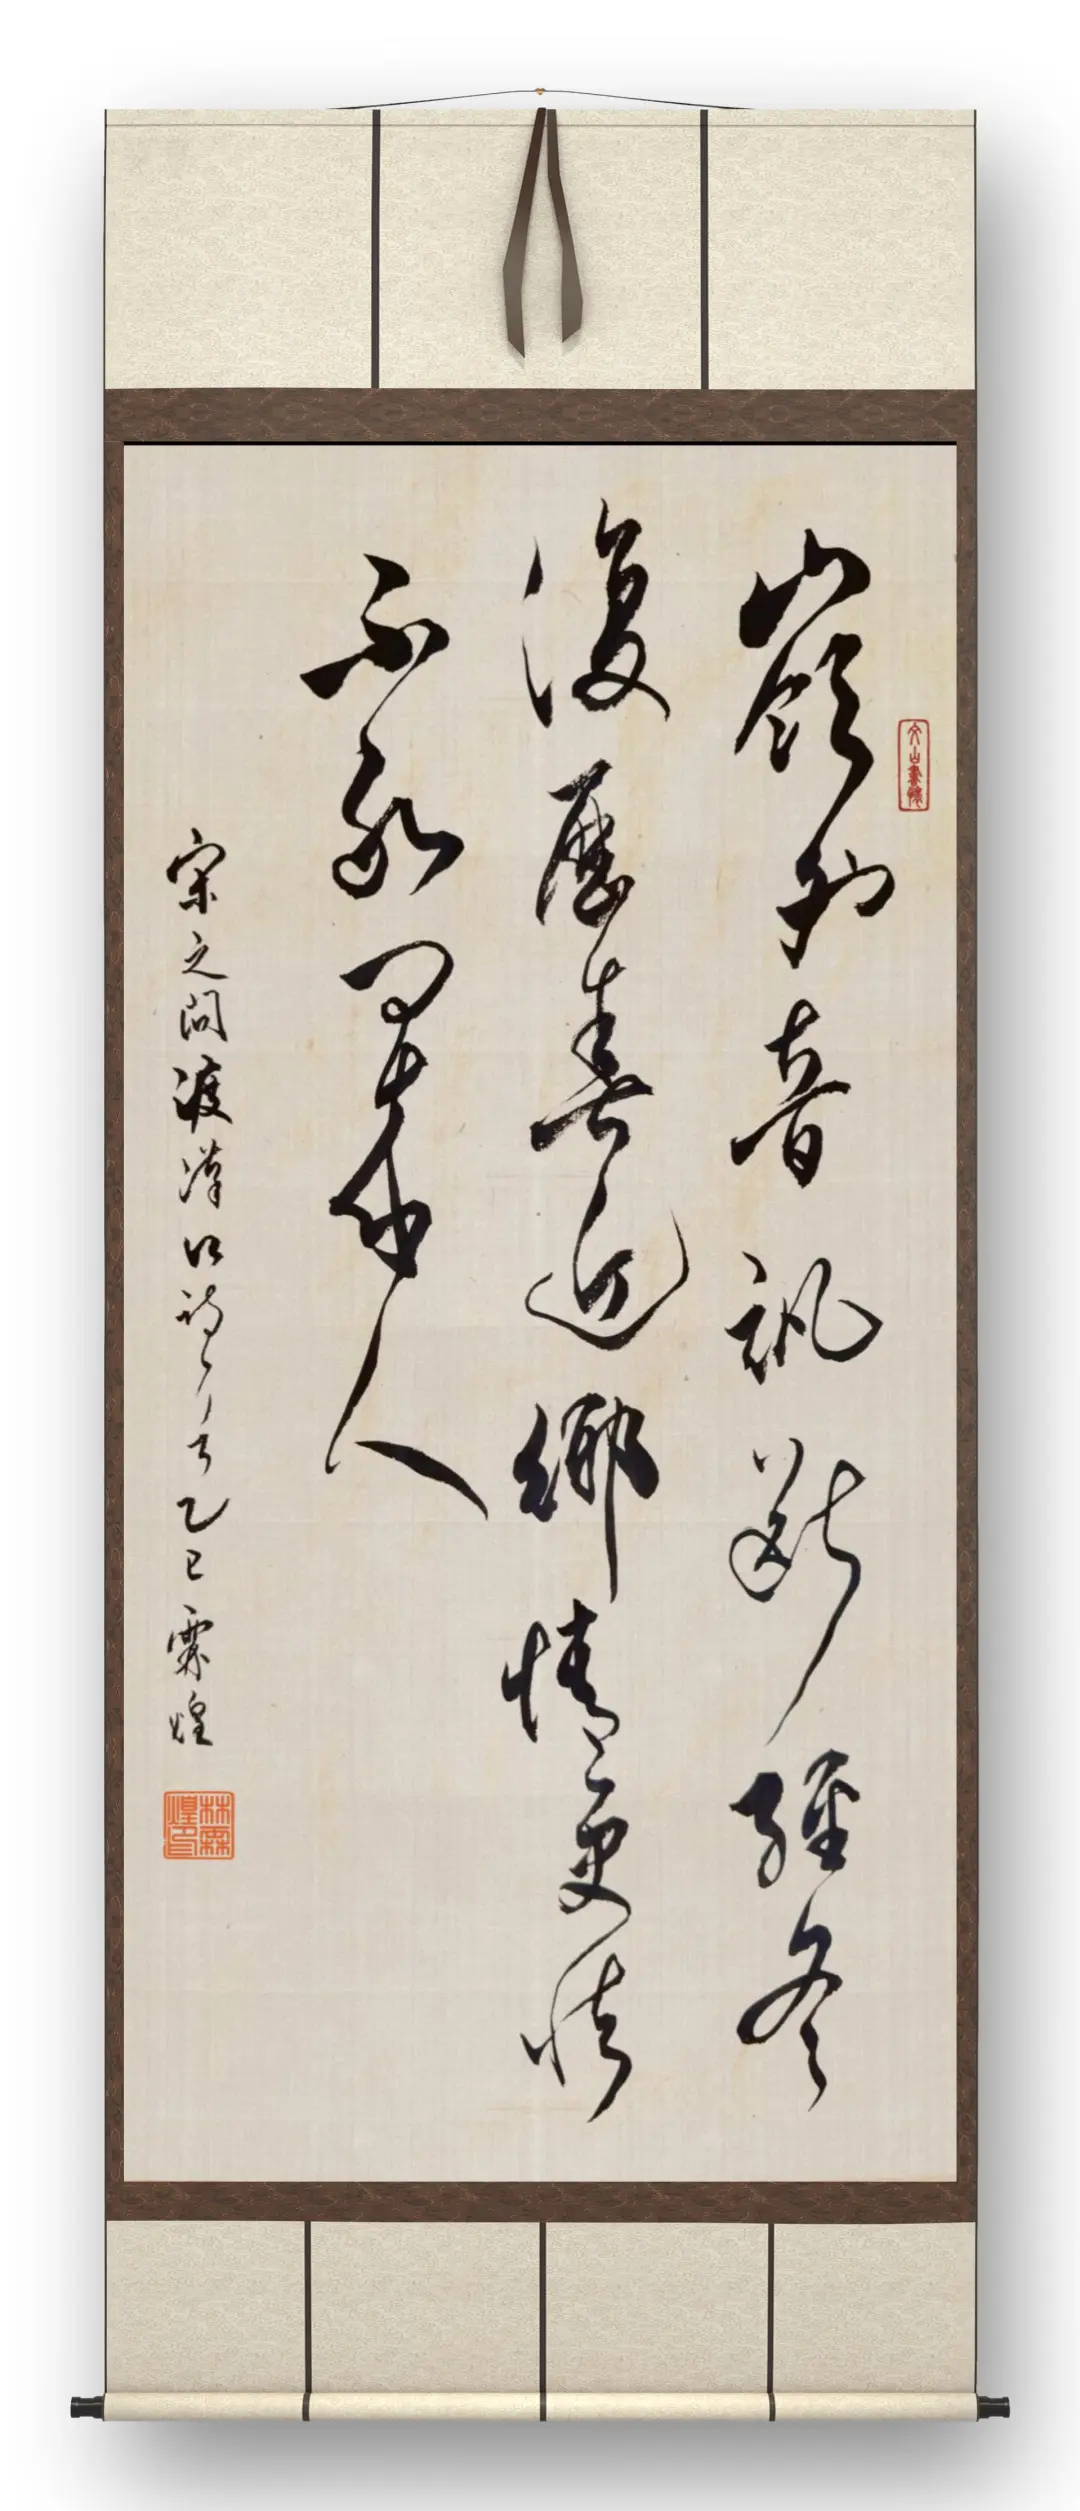 嶺外音訊斷經冬
復歷春近鄉情更怯
不敢問來人
宋之問渡漢江詩 乙巳 霖煌
林霖煌印